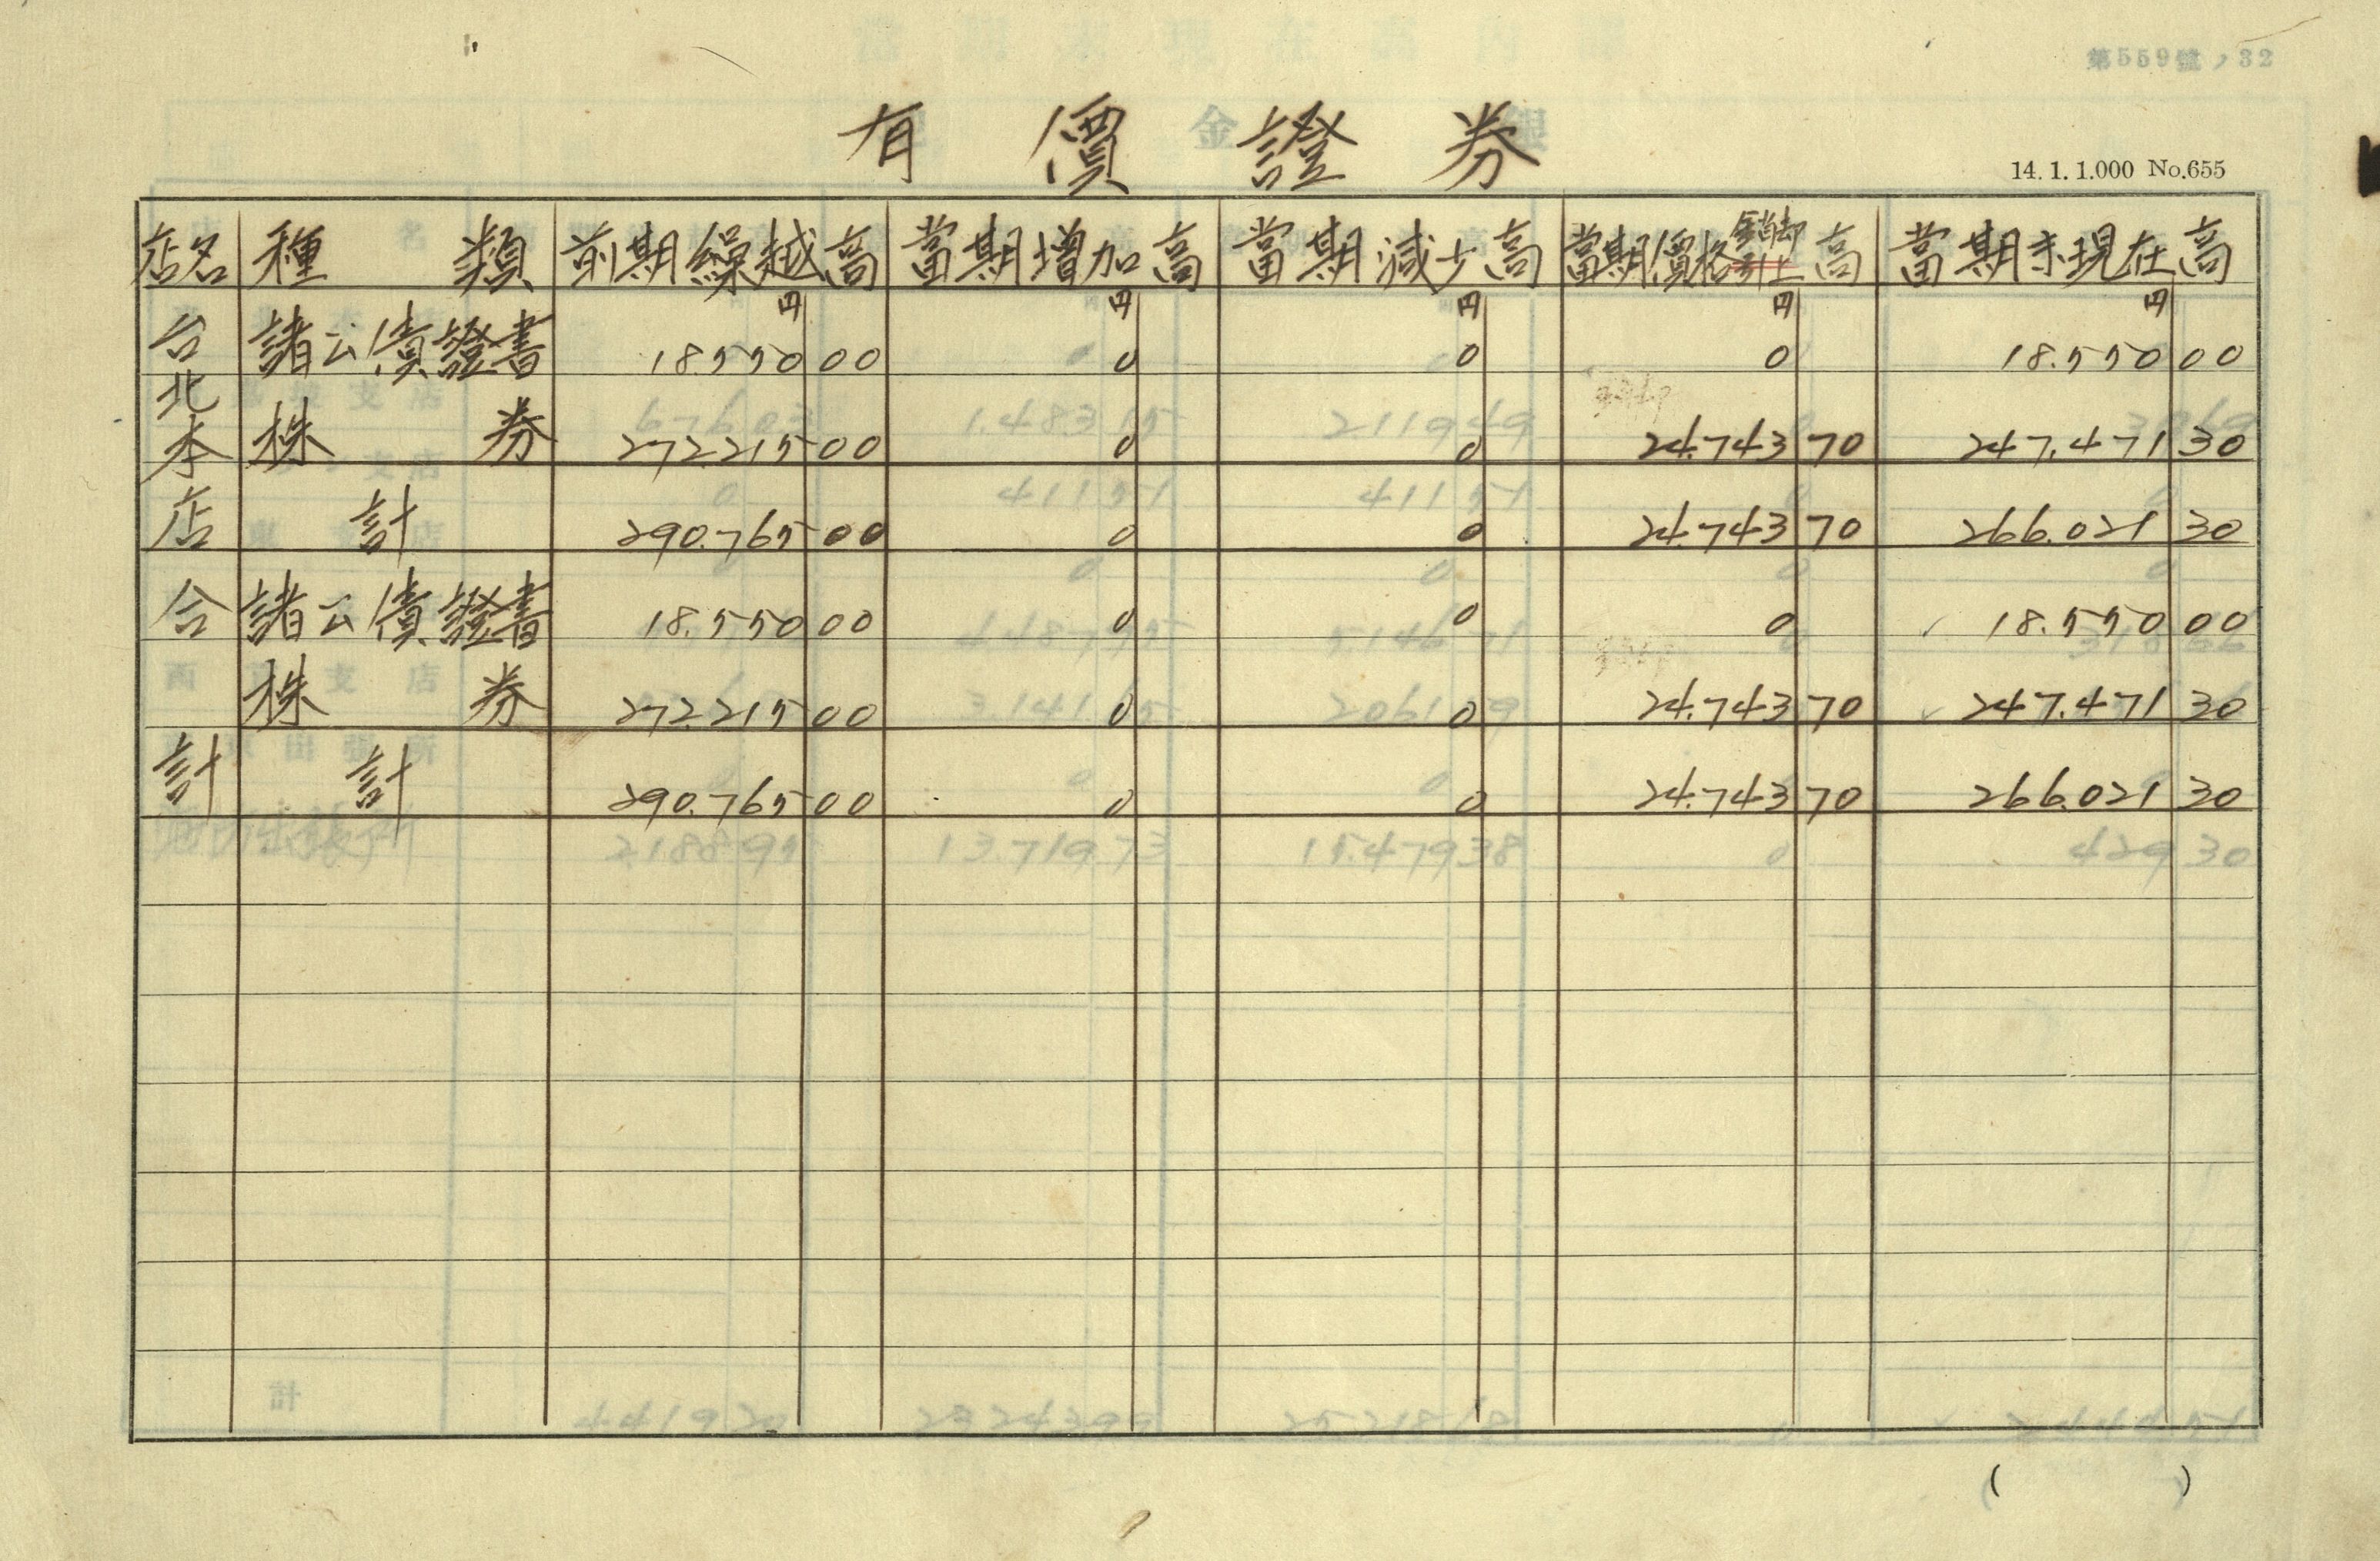 第559號ノ32
有價證券
14. 1. 1.000 No.655
店名 種類 前期繰越高 當期增加高 當期減少高 當期價格銷却高 當期末現在高
円 円 円 円 円
台北本店 諸公債證書 18.550 00 0 0 0 18.550 00
株券 272.215 00 0 0 24.743 70 247.471 30
計 290.765 00 0 0 24.743 70 266.021 30
合計 諸公債證書 18.550 00 0 0 0 18.550 00
株券 272.215 00 0 0 24.743 70 247.471 30
計 290.765 00 0 0 24.743 70 266.021 30
( )